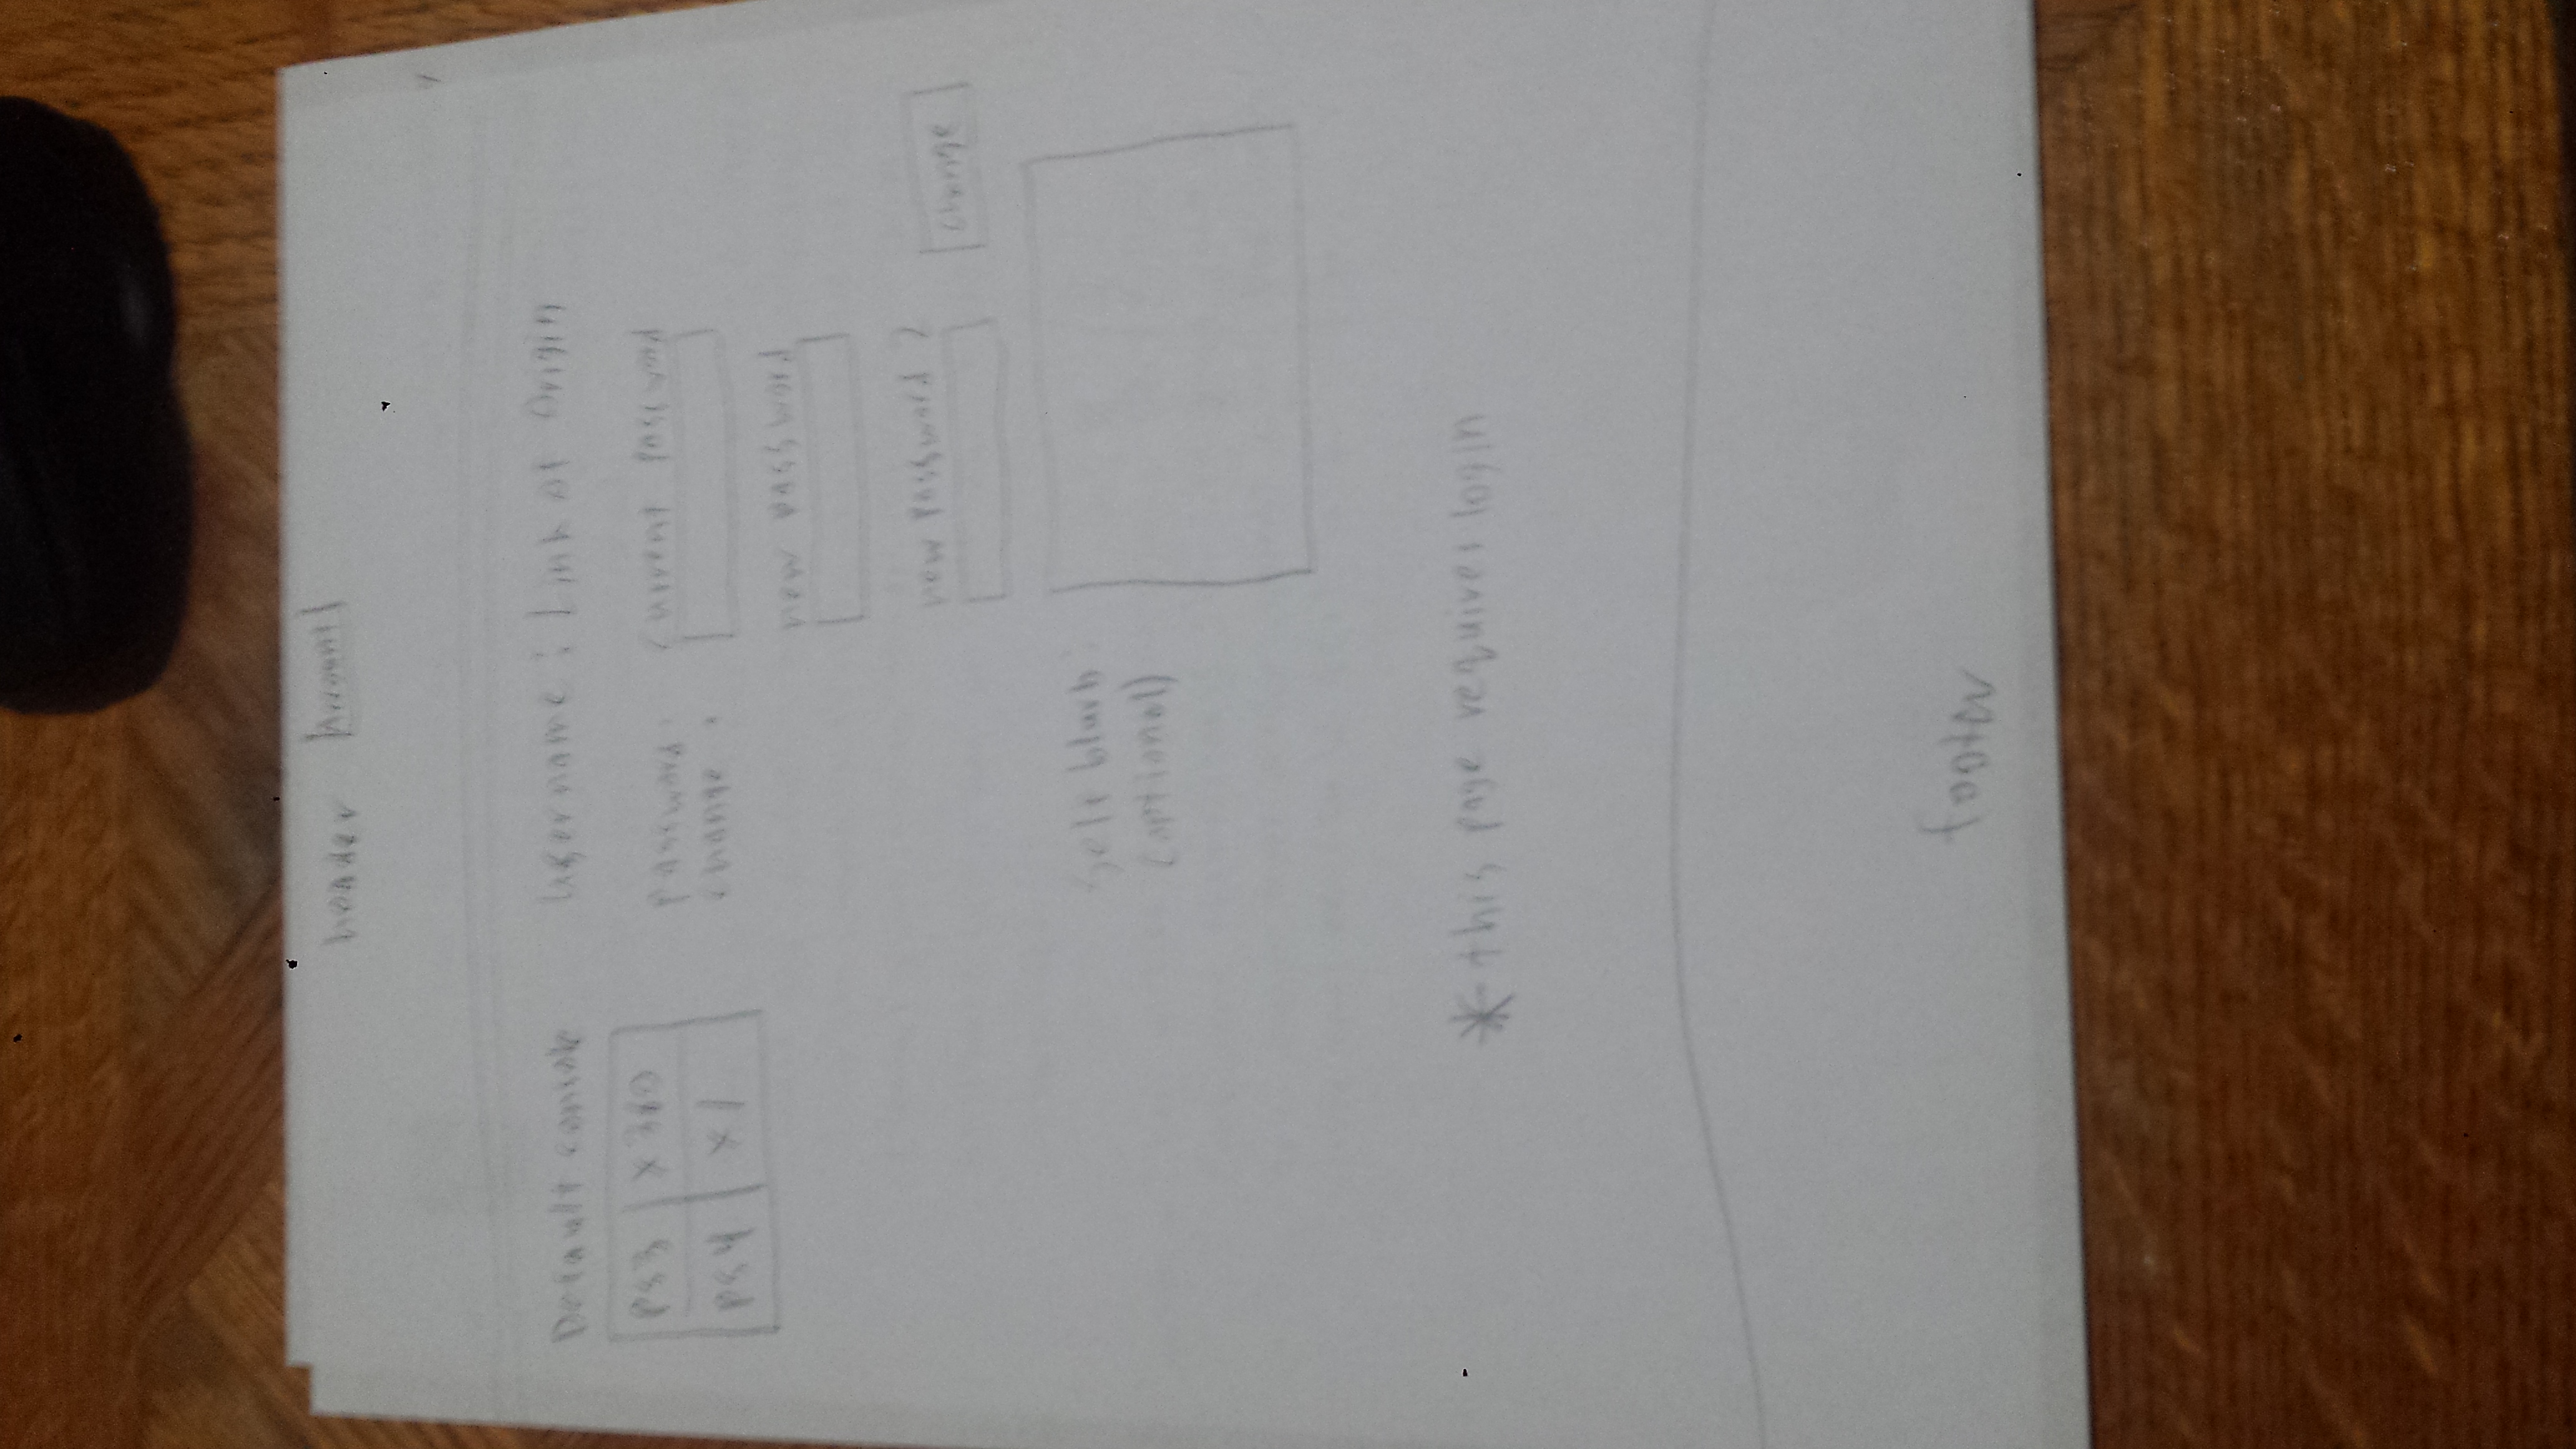 header Account
Default console
PS3 X360
PS4 X1
Username: Link of Origin
Password change:
Current Password
new password
new password 2
change
Self blurb:
(optional)
* this page requires login
footer